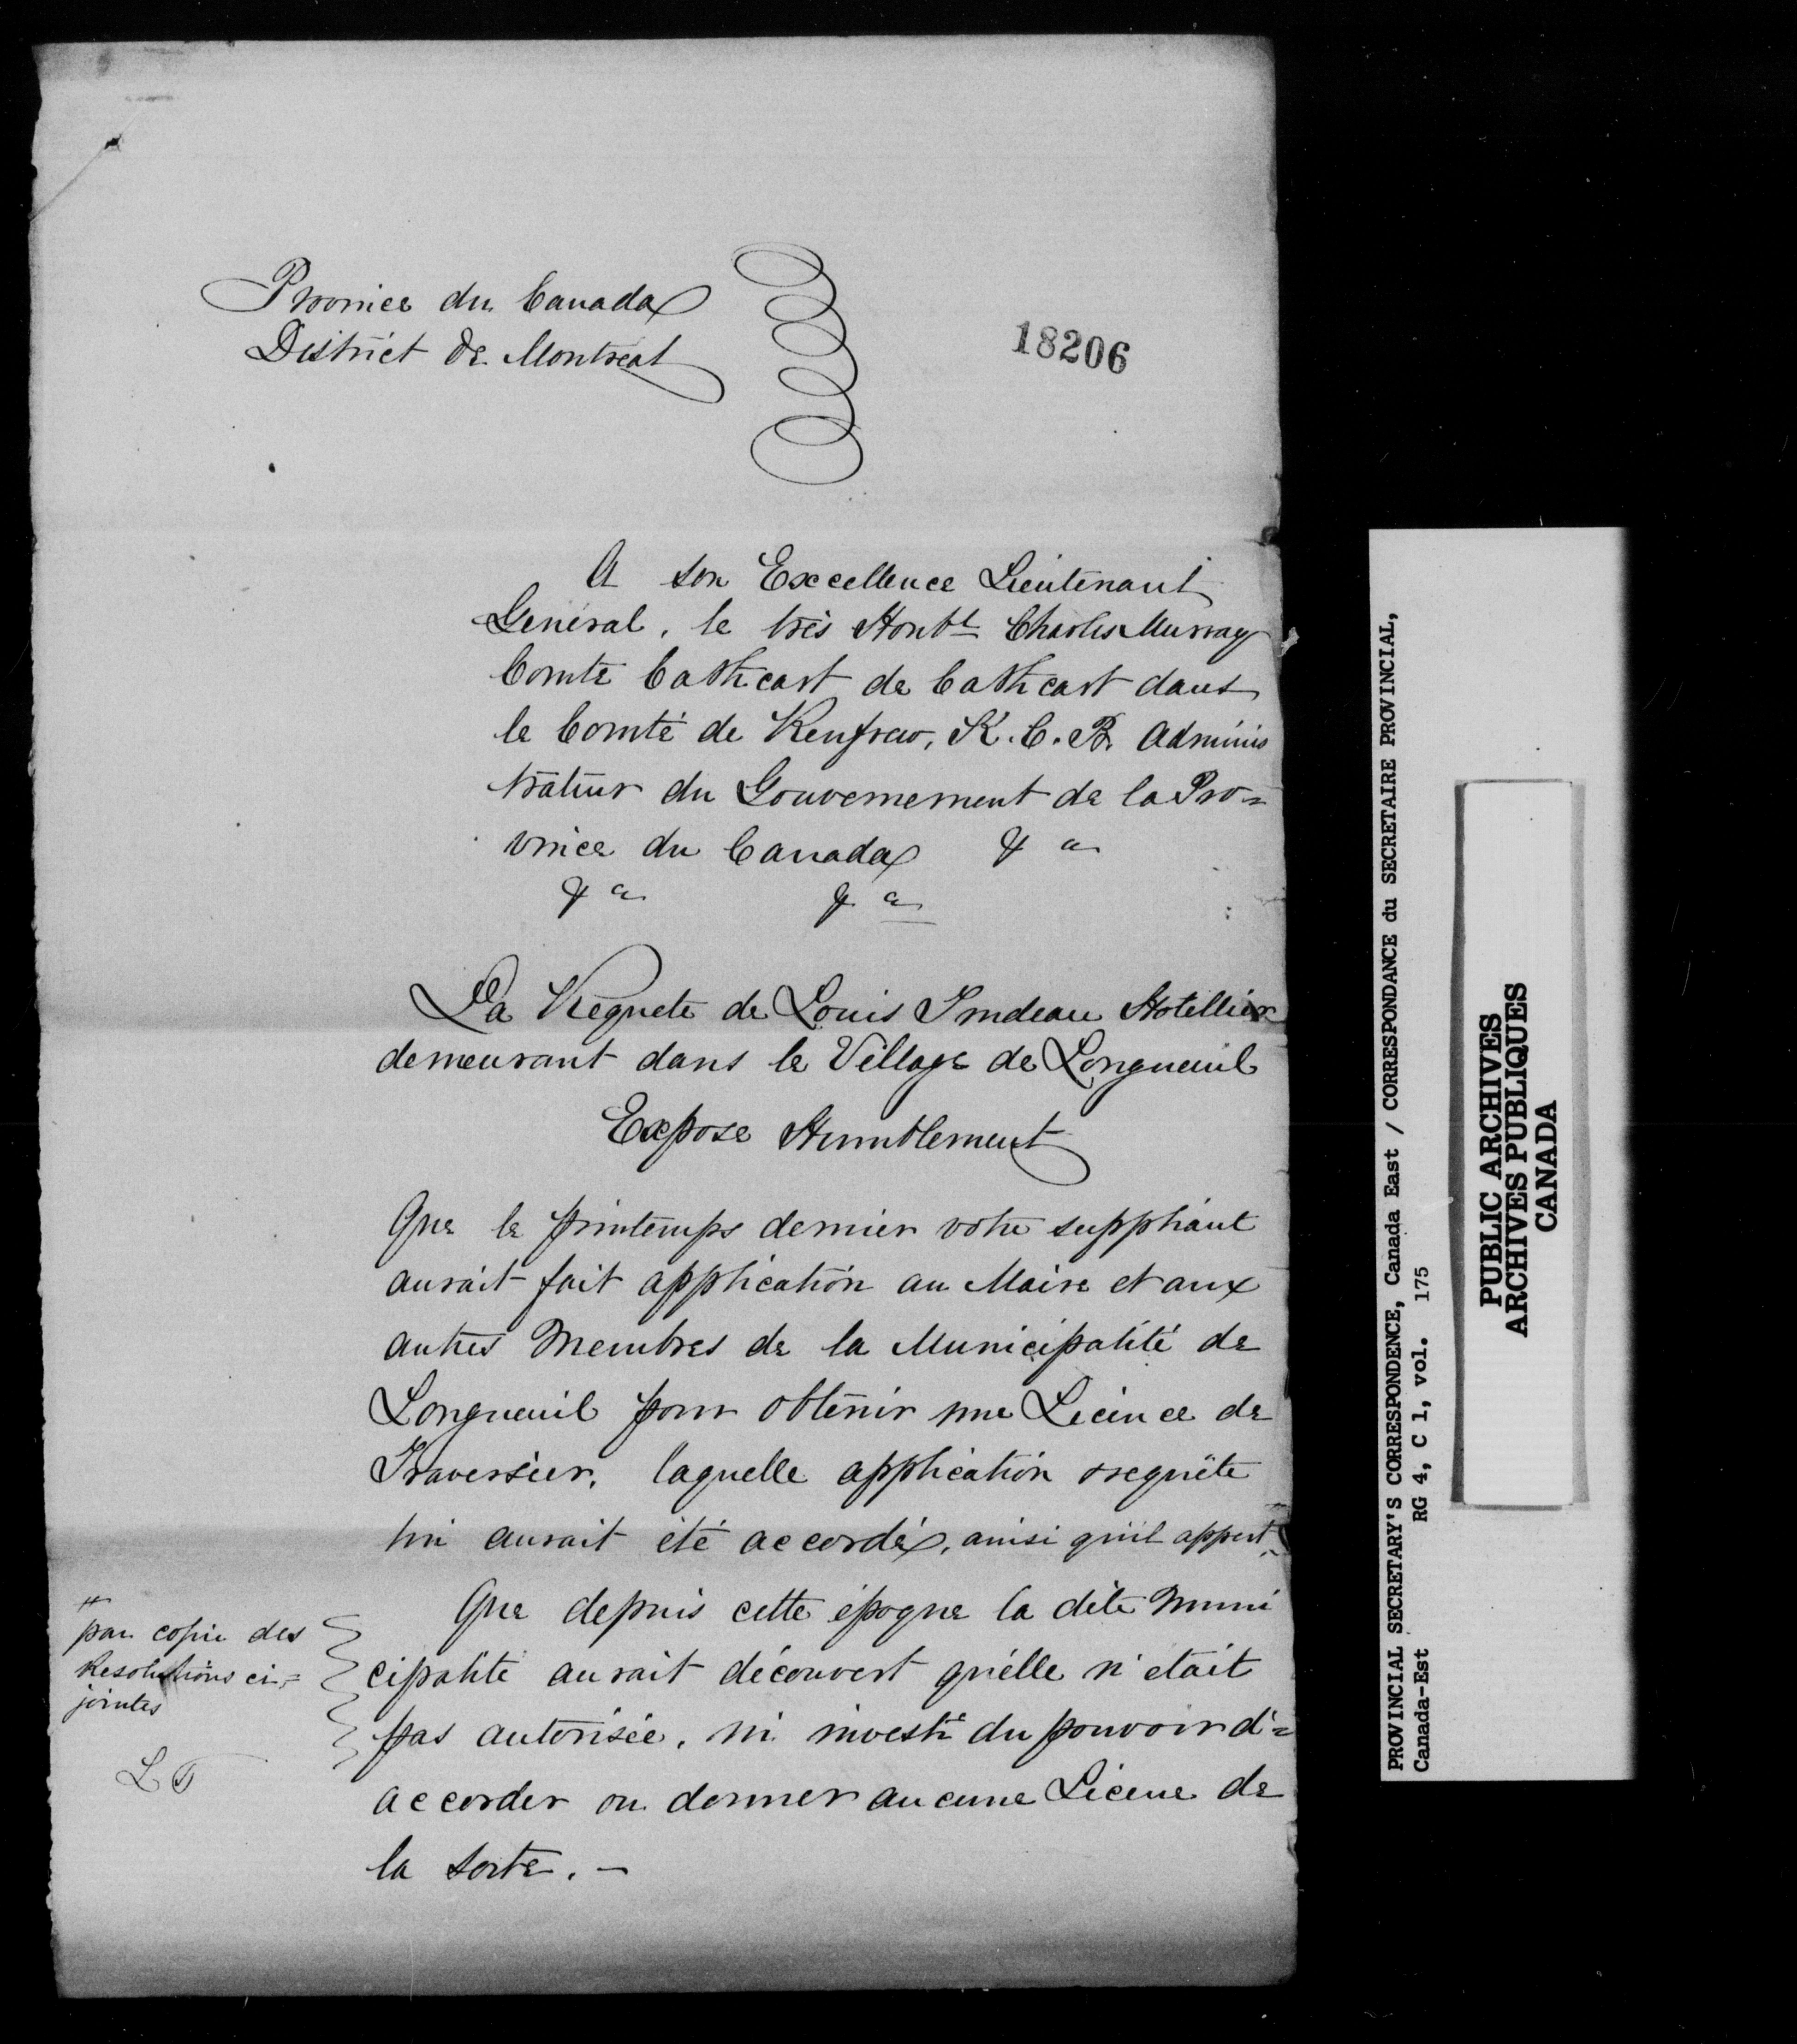 Province du Canada
District de Montreal
18206
A son Excellence Lieutenant
Général, le très Honble Charles Murray
Comte Cathcart de Cathcart dans
le Comté de Renfrew, K.C.B. Adminis
trateur du Gouvernement de la Pro=
vince du Canada & a
& a & a
La Requete de Louis Trudeau Hotellier
demeurant dans le Village de Longueuil
Expose Humblement
Que le printemps dernier votre suppliant
aurait fait application au Maire et aux
autres Membres de la Municipalité de
Longueuil pour obtenir une Licence de
Traversier, laquelle application & requête
lui aurait été accordée, ainsi qu'il appert
Que depuis cette époque la dite Muni
cipalité aurait découvert qu'elle n'etait
pas autorisée, ni investi du pouvoir d'=
accorder ou donner aucune Licence de
la sorte. –
#
par copie des
Resolutions ci-=
jointes
LT
PROVINCIAL SECRETARY'S CORRESPONDENCE, Canada East / CORRESPONDANCE du SECRETAIRE PROVINCIAL,
Canada-Est RG 4, C 1, vol. 175
PUBLIC ARCHIVES
ARCHIVES PUBLIQUES
CANADA